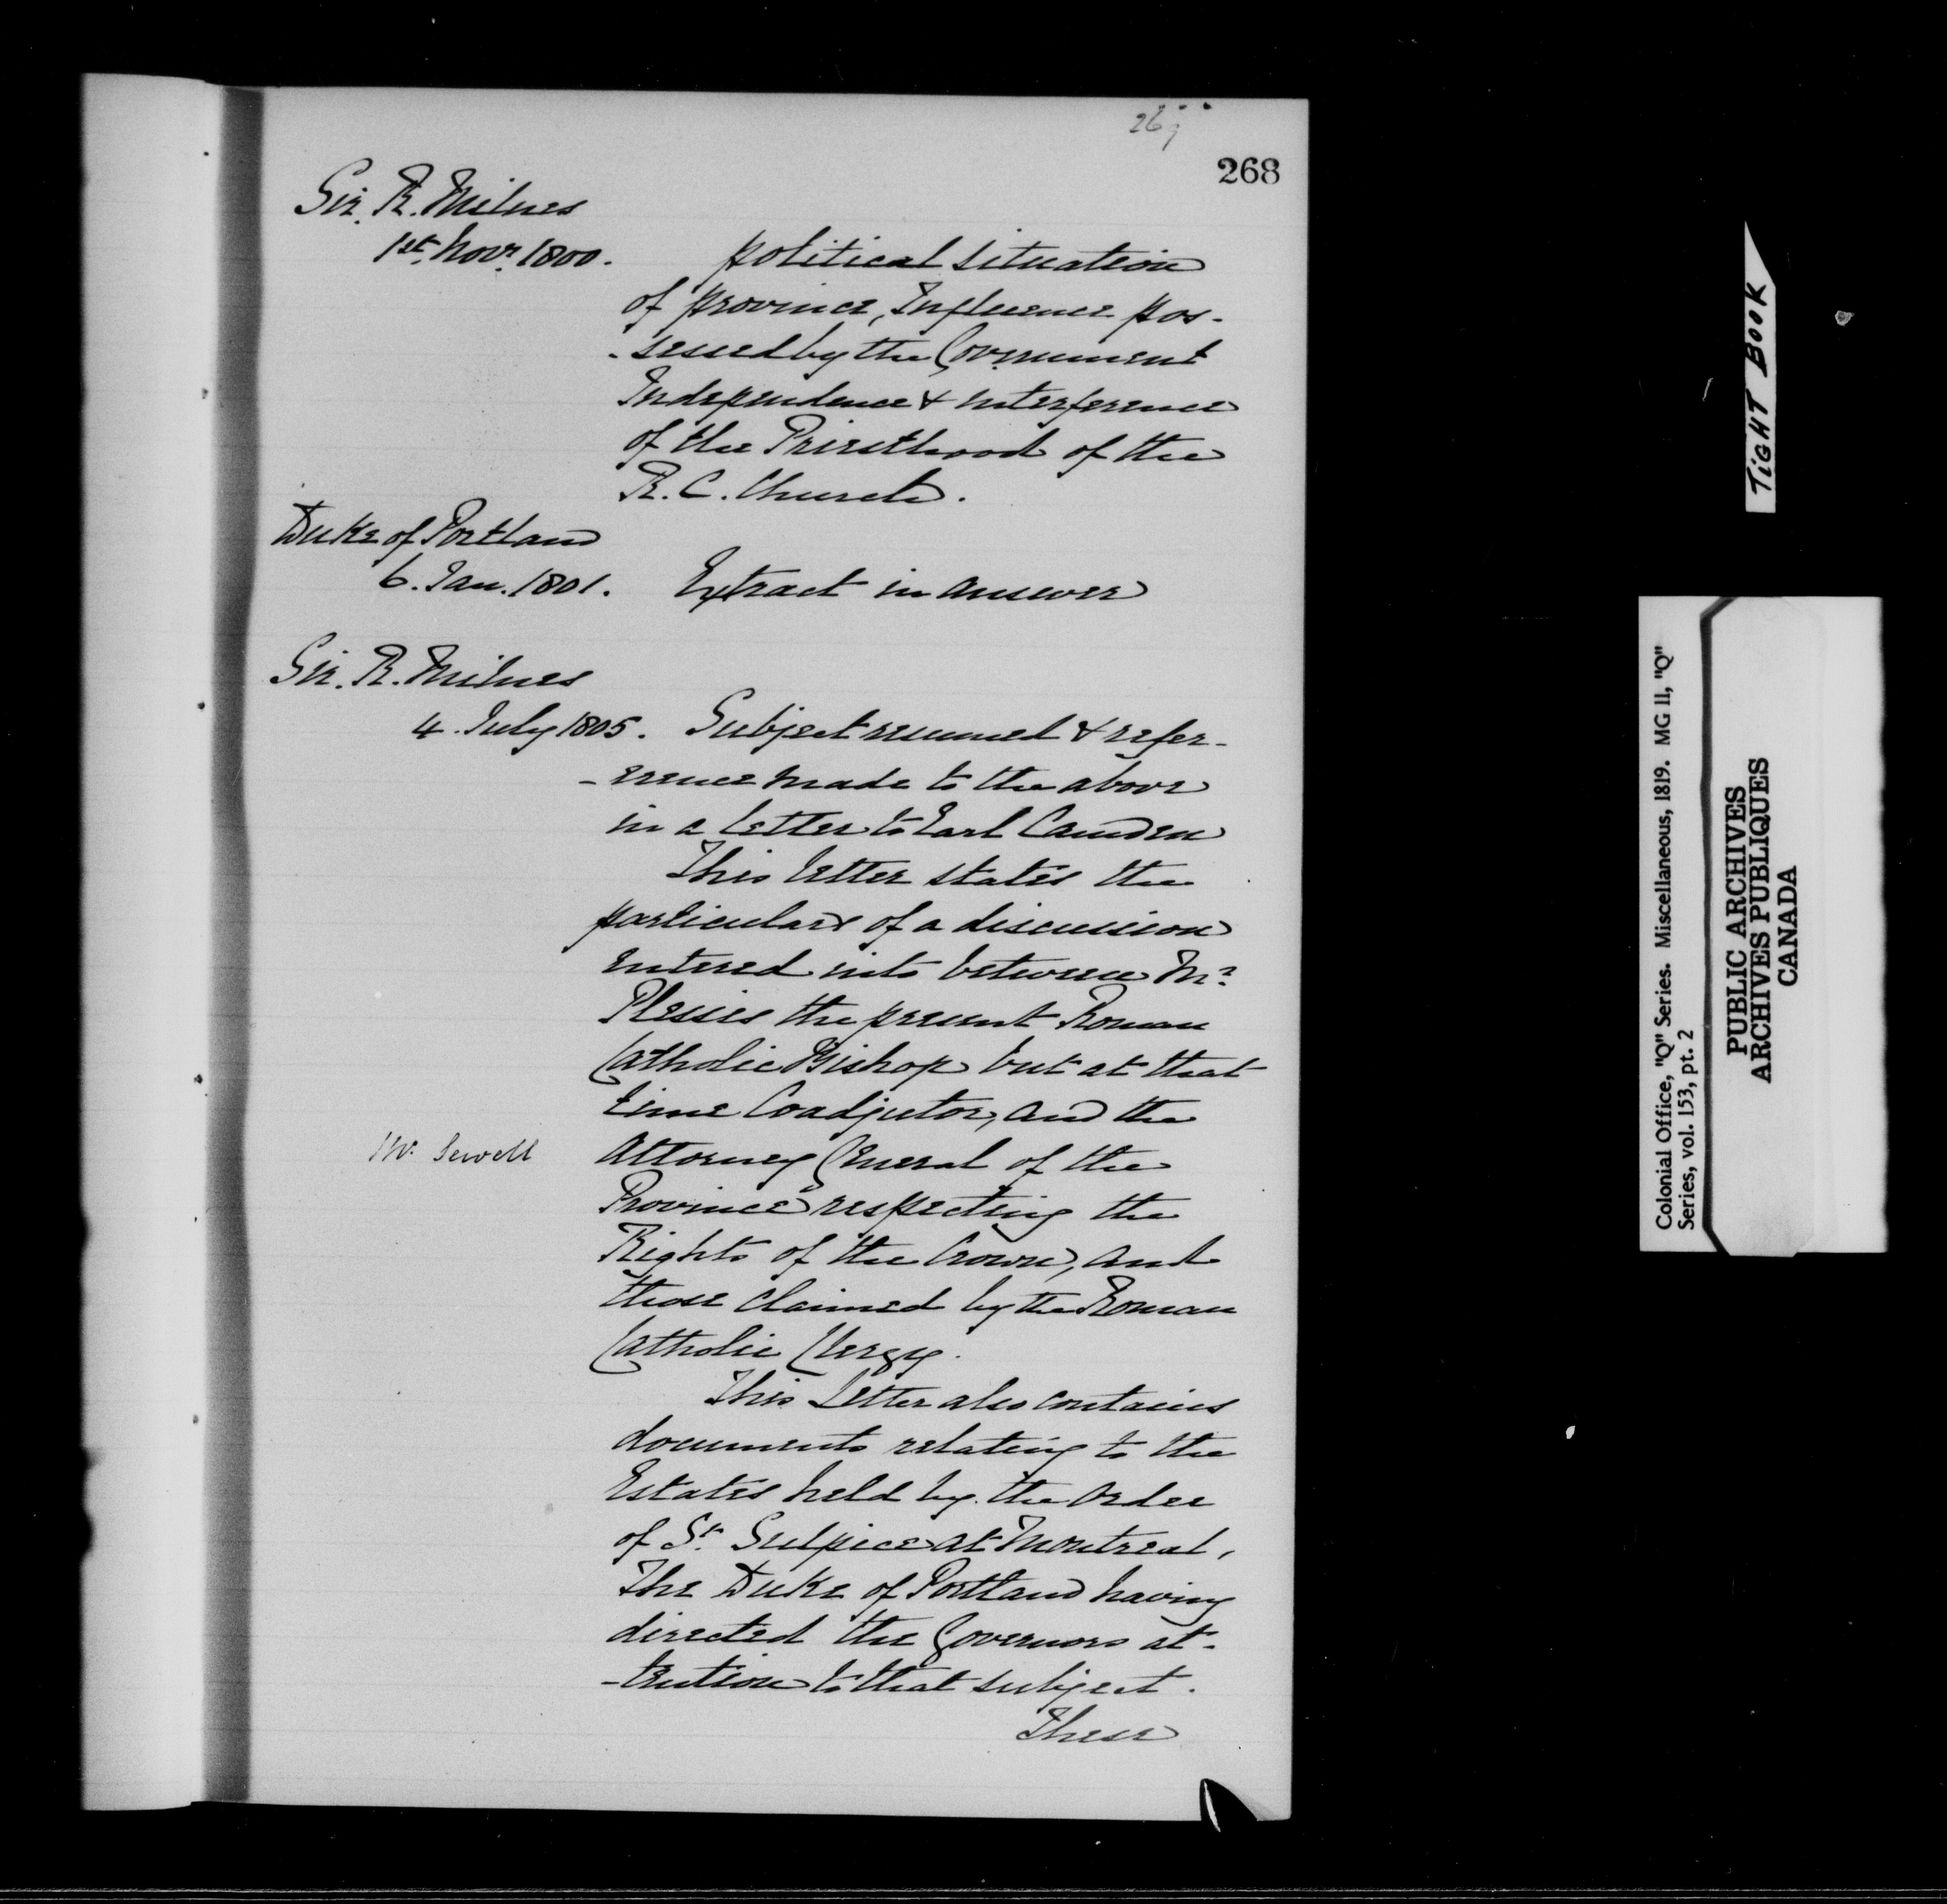 267
268
Sir. R. Milnes
1st. Novr. 1800.
political situation
of province, Influence pos-
-sessed by the Government
Independence & interference
of the Priesthood of the
R. C. Church.
Duke of Portland
6. Jan. 1801. Extract in answer
Sir. R. Milnes
4. July 1805. Subject resumed & refer-
-erence made to the above
in a letter to Earl Camden
This letter states the
particulars of a discussion
entered into between Mr.
Plessis the present Roman
Catholic Bishop but at that
time Coadjutor, and the
Mr. Sewell
Attorney General of the
Province respecting the
Rights of the Crown, and
those claimed by the Roman
Catholic Clergy.
This Letter also contains
documents relating to the
Estates held by the order
of St. Sulpice at Montreal,
The Duke of Portland having
directed the Governors at-
-tention to that subject.
These
TIGHT BOOK
Colonial Office, "Q" Series. Miscellaneous, 1819. MG 11, "Q"
Series, vol. 153, pt. 2
PUBLIC ARCHIVES
ARCHIVES PUBLIQUES
CANADA